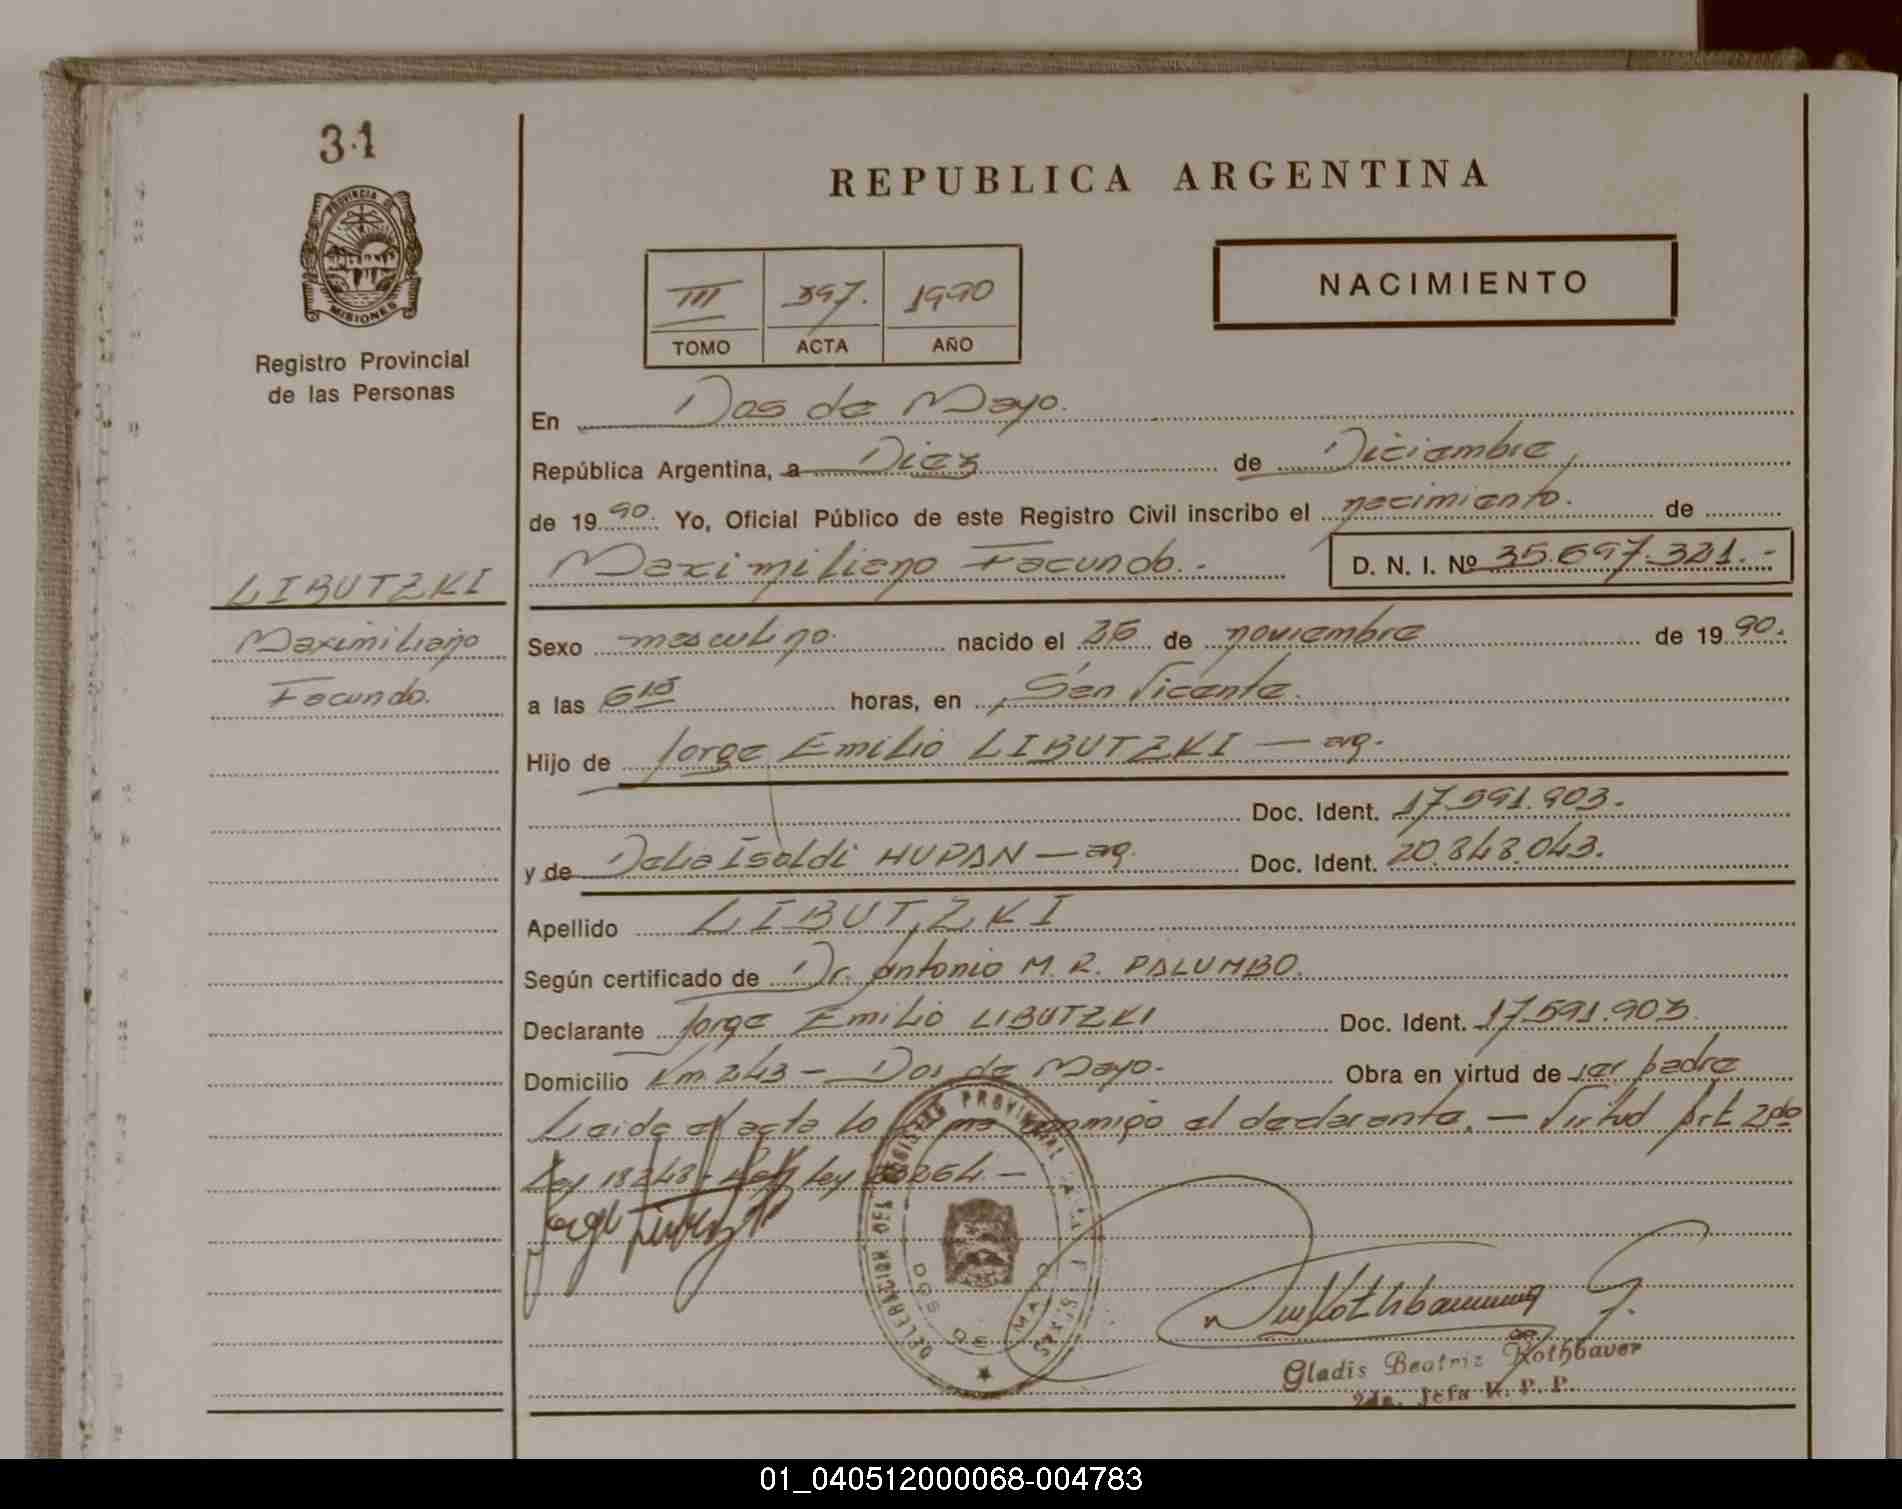 31
PROVINCIA DE
MISIONES
Registro Provincial
de las Personas
LIBUTZKI
Maximiliano
Facundo.
REPUBLICA ARGENTINA
NACIMIENTO
III 397. 1990
TOMO ACTA AÑO
En Dos de Mayo.
República Argentina, a Diez de Diciembre,
de 1990. Yo, Oficial Público de este Registro Civil inscribo el nacimiento. de
Maximiliano Facundo.- D. N. I. Nº 35.697.321.-
Sexo masculino. nacido el 26 de noviembre de 1990.
a las 6 15 horas, en San Vicente.
Hijo de Jorge Emilio LIBUTZKI — arg.
Doc. Ident. 17.591.903.
y de Delia Isoldi HUPAN — arg. Doc. Ident. 20.848.043.
Apellido LIBUTZKI
Según certificado de Dr. Antonio M. R. PALUMBO.
Declarante Jorge Emilio LIBUTZKI Doc. Ident. 17.591.903.
Domicilio Km 243 – Dos de Mayo. Obra en virtud de ser padre
Leida el acta lo firma conmigo el declarante. — Virtud Art 2do
Ley 18248 - Ley 23264. —
DELEGACION DEL REGISTRO PROVINCIAL DE LAS PERSONAS
DOS DE MAYO
Gladis Beatriz Rothbauer
2da. Jefa R. P. P.
01_040512000068-004783